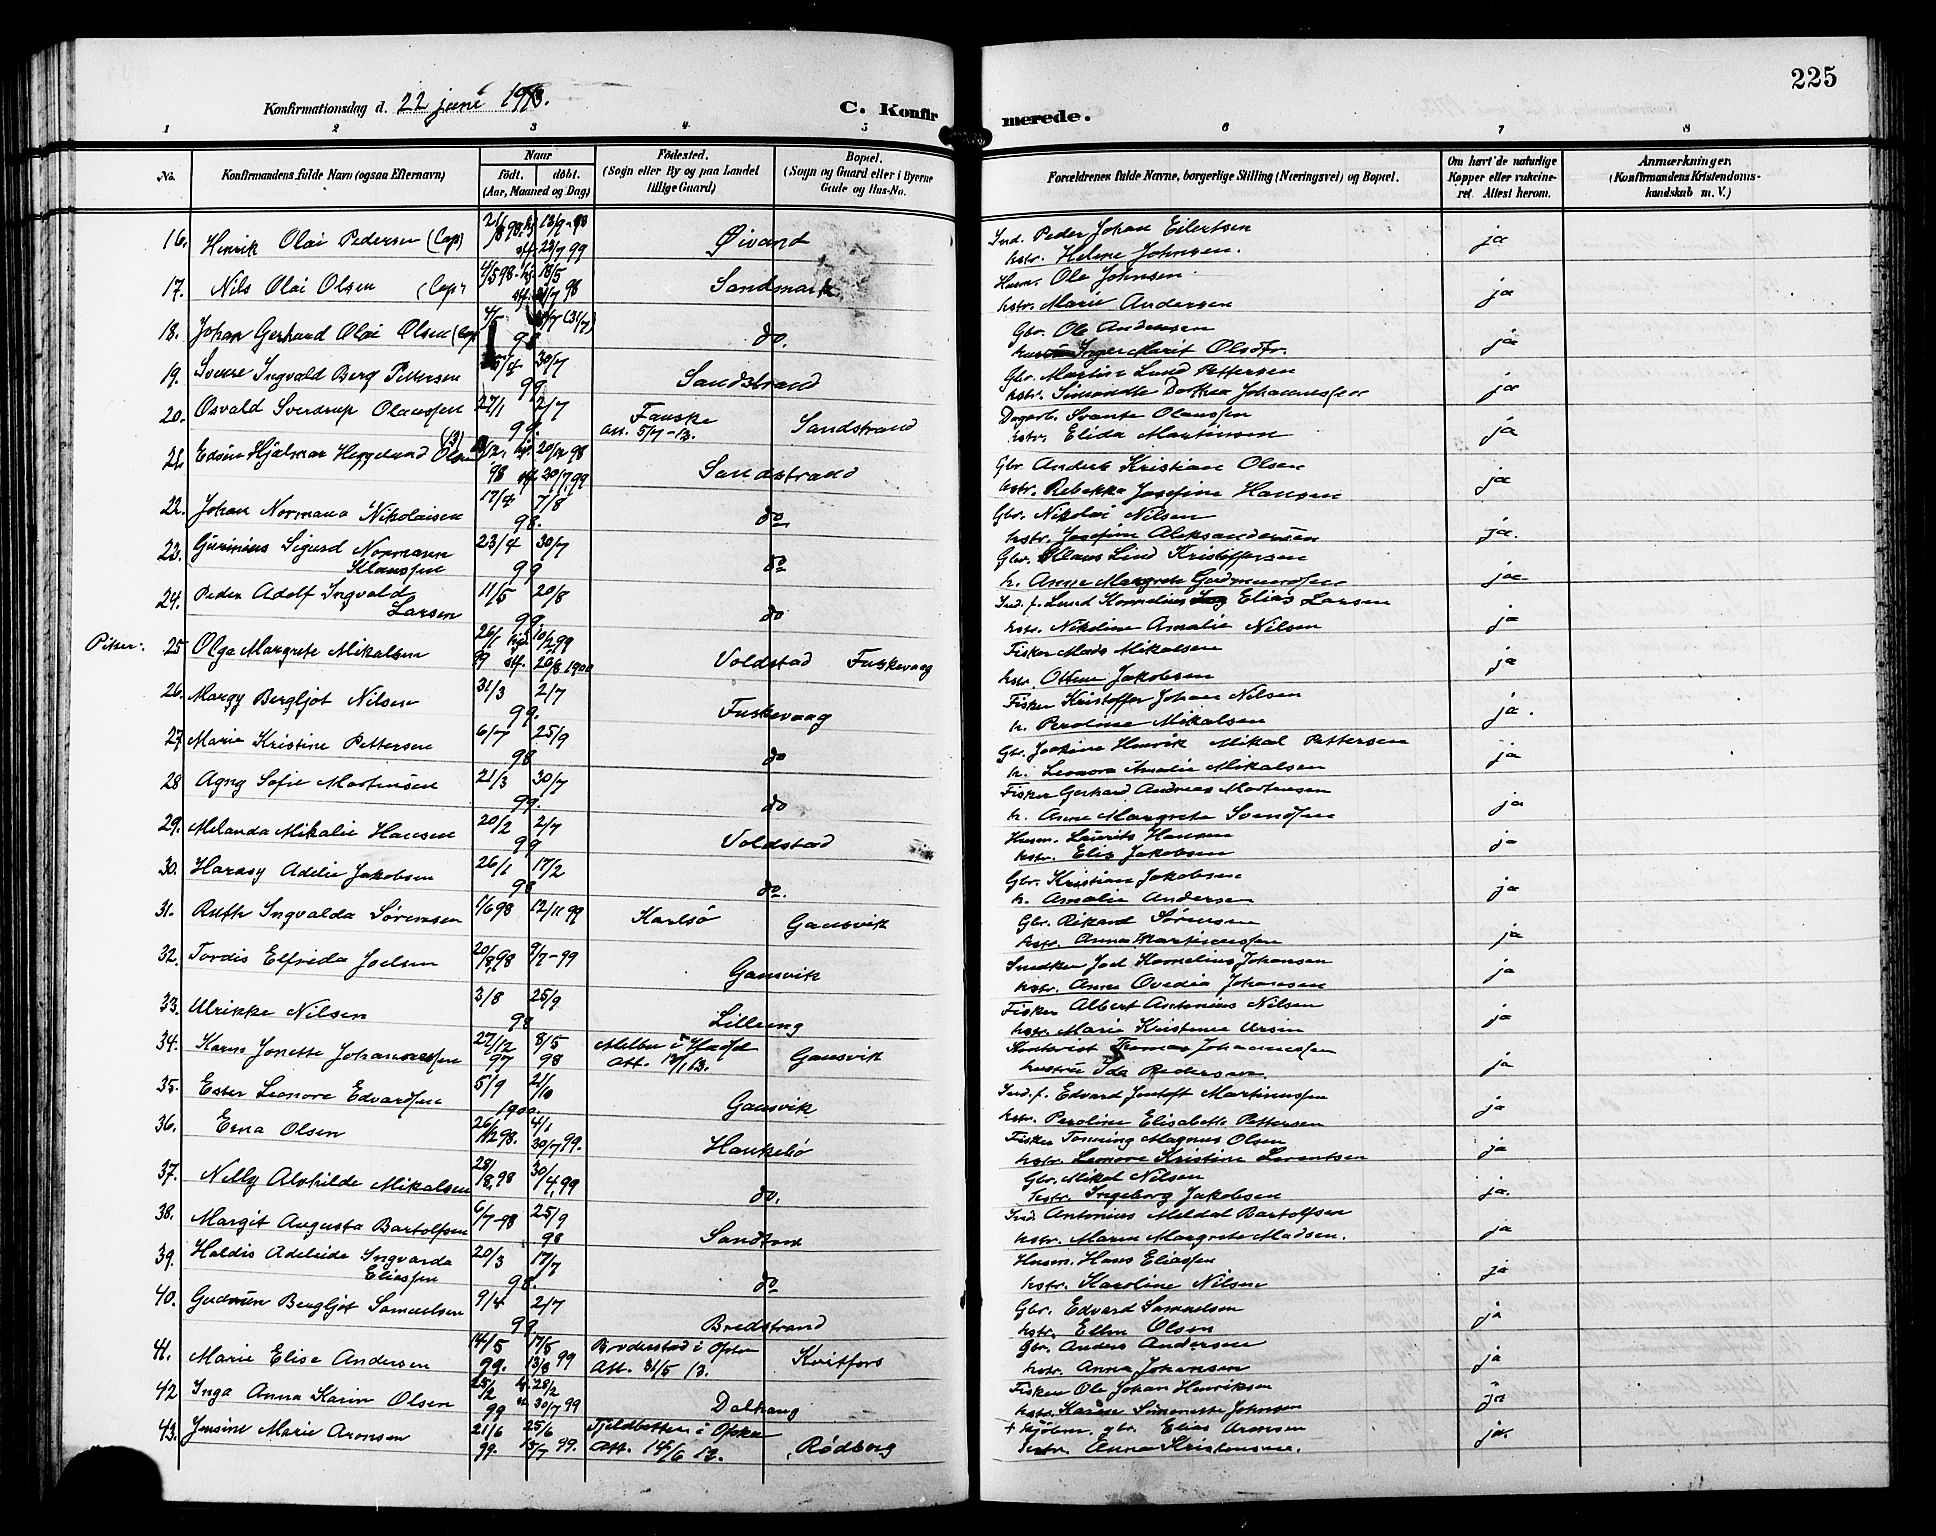 225
Konfirmationsdag d. 22 juni 1913. C. Konfirmerede.
1 2 3 4 5 6 7 8
No. Konfirmandens fulde Navn (ogsaa Efternavn) Naar født. døbt. (Aar, Maaned og Dag) Fødested. (Sogn eller By og paa Landet tillige Gaard) Bopæl. (Sogn og Gaard eller i Byerne Gade og Hus-No. Forældrenes fulde Navne, borgerlige Stilling (Næringsvei) og Bopæl. Om havt de naturlige Kopper eller vakcineret. Attest herom. Anmærkninger. (Konfirmandens Kristendomskundskab m. V.)
16. Henrik Olai Pedersen (Cap) 13/9-98 23/7 99 Øivand Ind. Peder Johan Eilertsen
hstr. Helene Johnsen. ja
17. Nils Olai Olsen (Cap) 4/5 98 18/5 98 Sandmark Husm. Ole Johnsen
hstr. Marie Andersen ja
18. Johan Gerhard Olai Olsen (Cap) 98 (31/7) do. Gbr. Ole Andersen
Inger Marit Olsdtr. ja
19. Sverre Ingvald Berg Pettersen 30/7 99. Sandstrand Gbr. Martin Lund Pettersen
hstr. Simondte Dorthea Johannessen ja
20. Osvald Sverdrup Olaussen 27/1 2/7 99. Fauske att. 5/7-13. Sandstrand Dagarb. Svante Olaussen
hstr. Elida Martinsen ja
21. Edvin Hjalmar Heggelund Olsen 98 20/12 98 20/7 99 Sandstrand Gbr. Anders Kristian Olsen
hstr. Rebekka Josefine Hansen ja
22. Johan Normann Nikolaisen 17/4 7/8 98. do Gbr. Nikolai Nilsen
hstr. Josefine Aleksandersen ja.
23. Gurinius Sigurd Normann Klaussen 23/4 30/7 99 do Gbr. Klaus Lind Kristoffersen
h. Anne Margrete Gudmundsen ja
24. Peder Adolf Ingvald Larsen 11/5 20/8 99. do Ind. f. Lund Kornelius Elias Larsen
hstr. Nikoline Amalie Nilsen ja
Piker: 25 Olga Margrete Mikalsen 26/1 99 10/2 99 26/8 1900 Voldstad Fuskevaag Fisker Mads Mikalsen
hstr. Ottine Jakobsen ja
26. Margy Bergljot Nilsen 31/3 2/7 99. Fuskevaag Fisker Kristoffer Johan Nilsen
h. Peroline Mikalsen ja.
27. Marie Kristine Pettersen 6/7 25/9 98 do Gbr. Joakim Henrik Mikal Pettersen
h. Leonora Amalie Mikalsen ja
28 Agny Sofie Mortensen 21/3 30/7 99. do Fisker Gerhard Andreas Mortensen
h. Anne Margrete Svendsen ja
29. Melanda Mikalie Hansen 20/2 2/7 99 Voldstad Husm. Laurits Hansen
hstr. Elis Jakobsen ja
30. Hardsy Adelie Jakobsen 26/1 17/2 98 do. Gbr. Kristian Jakobsen
h. Amalie Andersen ja
31. Ruth Ingvalda Sørensen 1/6 98 12/11 99 Karlsø Gausvik Gbr. Rikard Sørensen
hstr. Anna Martinussen ja
32. Tordis Elfrida Joelsen 20/8 98 9/7-99 Gausvik Snedker Joel Kornelius Johansen
hstr. Anna Ovedia Johansen ja
33. Ulrikke Nilsen 3/8 25/9 98 Lilleng Fisker Albert Antonius Nilsen
hstr. Marie Kristine Ursin ja
34. Karen Jonette Johannessen 27/12 97 8/5 98 Melbu i Hadsel Att. Gausvik Kontorist Tomas Johannessen
hustru Ida Pedersen. ja
35. Ester Leonore Edvardsen 5/9 21/10 1900 Gausvik Ind. f. Edvard Jentoft Martinussen
hstr. Peroline Elisabeth Pettersen ja
36. Erna Olsen 26/12 98. 4/1 30/7 99. Haukebø Fisker Tonning Magnus Olsen
hstr. Leonore Kristine Lorentsen ja
37. Nelly Alvhilde Mikalsen 28/8 98 30/4 99 do. Gbr. Mikal Nilsen
hstr. Ingeborg Jakobsen ja.
38. Margit Augusta Bartolfsen 6/7-98 25/9 98 Sandtorv Ind. Antonius Meldal Bartolfsen
hstr. Maren Margrete Madsen. ja
39. Haldis Adeleide Ingvarda Eliassen 20/3 17/7 98 do Husm. Hans Eliassen
hstr. Karoline Nilsen ja
40. Gudrun Bergljot Samuelsen 9/4 2/7 99 Bredstrand Gbr. Edvard Samuelsen
hstr. Ellen Olsen ja
41. Marie Elise Andersen 14/5 99. 17/5 13/8 99 Broderstad i Ofoten Att. 31/5 13. Kvitfors Gbr. Anders Andersen
hstr. Anna Johansen ja
42 Inga Anna Karin Olsen 25/2 99 28/2 30/7 99 Dalhaug Fisker Ole Johan Henriksen
hstr. Karen Simonette Johnsen ja
43. Jensine Marie Aronsen 21/6 99. 25/6 13/7 99. Fjeldbotten i Ofoten Att. 14/6 13. Rødberg + kjøbm. gbr. Elias Aronsen
hstr. Anna Kristensen. ja.